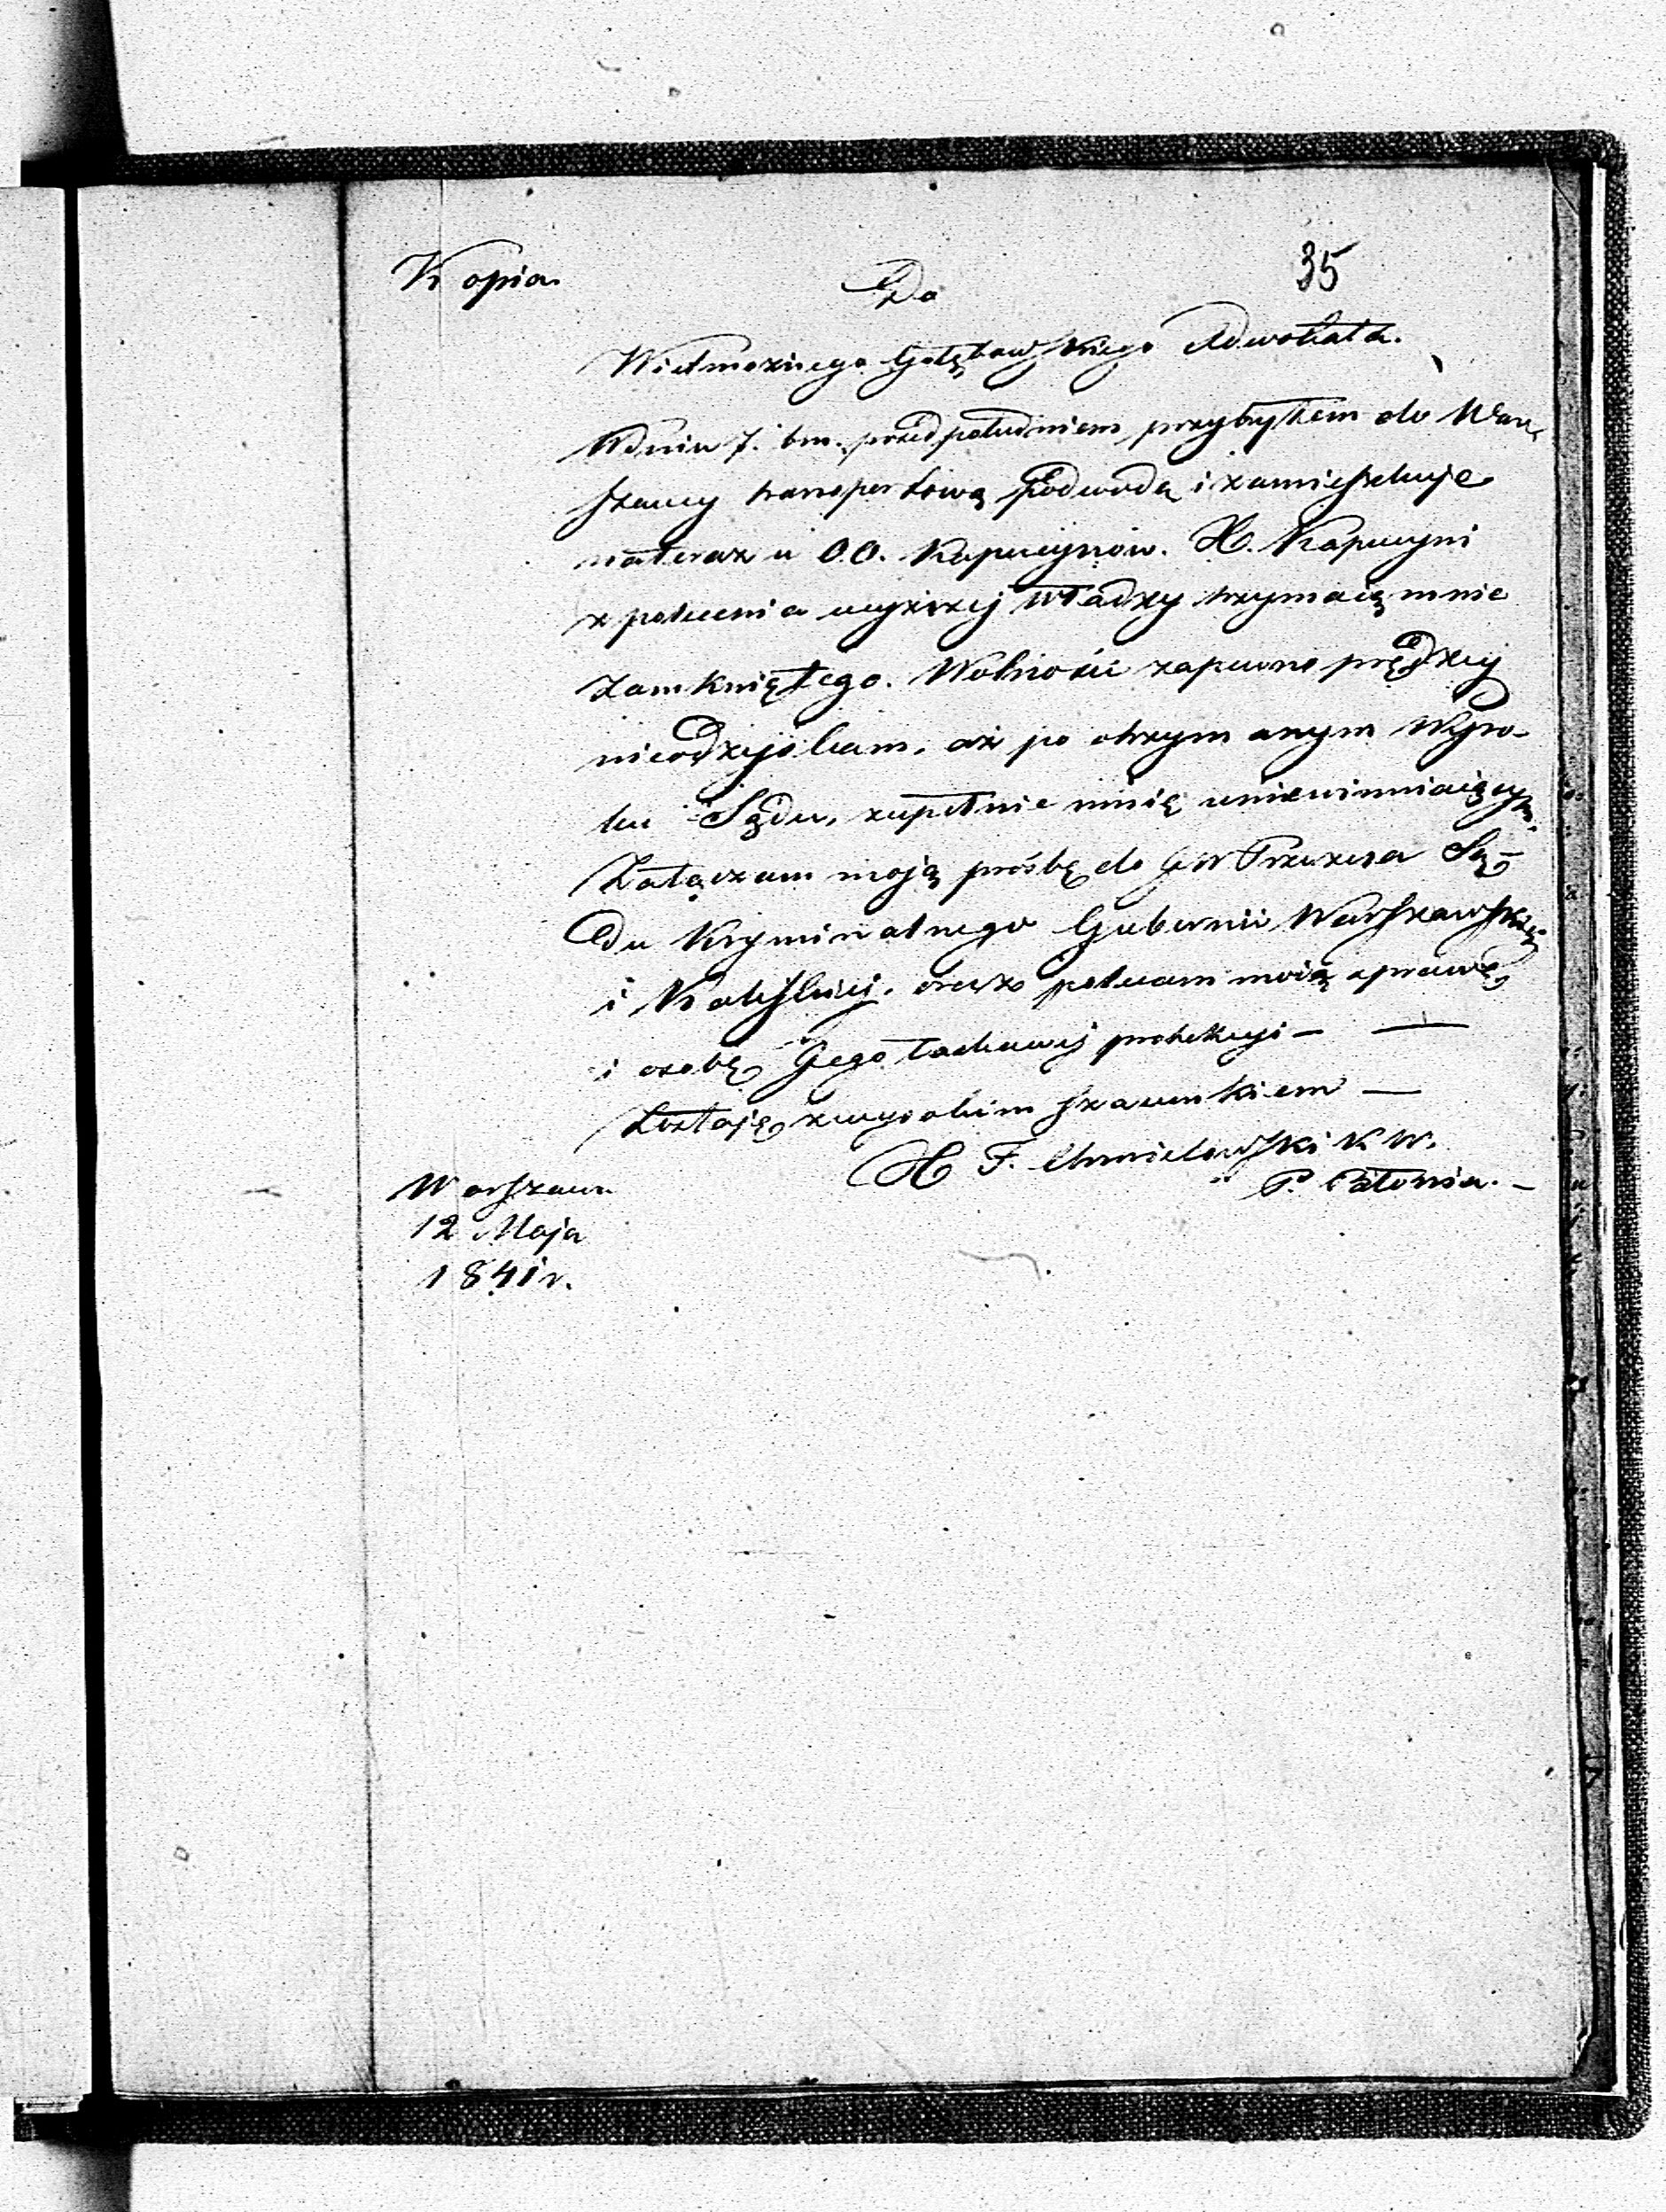 Kopia
35
Do
Wielmożnego Gołębowskiego Adwokata.
W dniu 7. bm. przed południem przybyłem do War-
szawy transportową podwodą i zamieszkuje
na teraz u O.O. Kapucynów. X. Kapucyni
z polecenia wyższej Władzy trzymaią mnie
zamkniętego. Wolności zapewne prędzey
nieodzyskam, aż po otrzymanym Wyro-
ku Sądu, zupełnie mnię uniewinniaiącym.
Załączam moją prośbę do JW Prezesa Są-
du Kryminalnego Gubernii Warszawskiej
i Kaliskiej, oraz polecam moią sprawę
i osobę Jego łaskawej protekcyi —
Zostaję z wysokim szacunkiem —
X F. Chmielewski K W.
P. Błonia. —
Warszawa
12 Maja
1841 r.